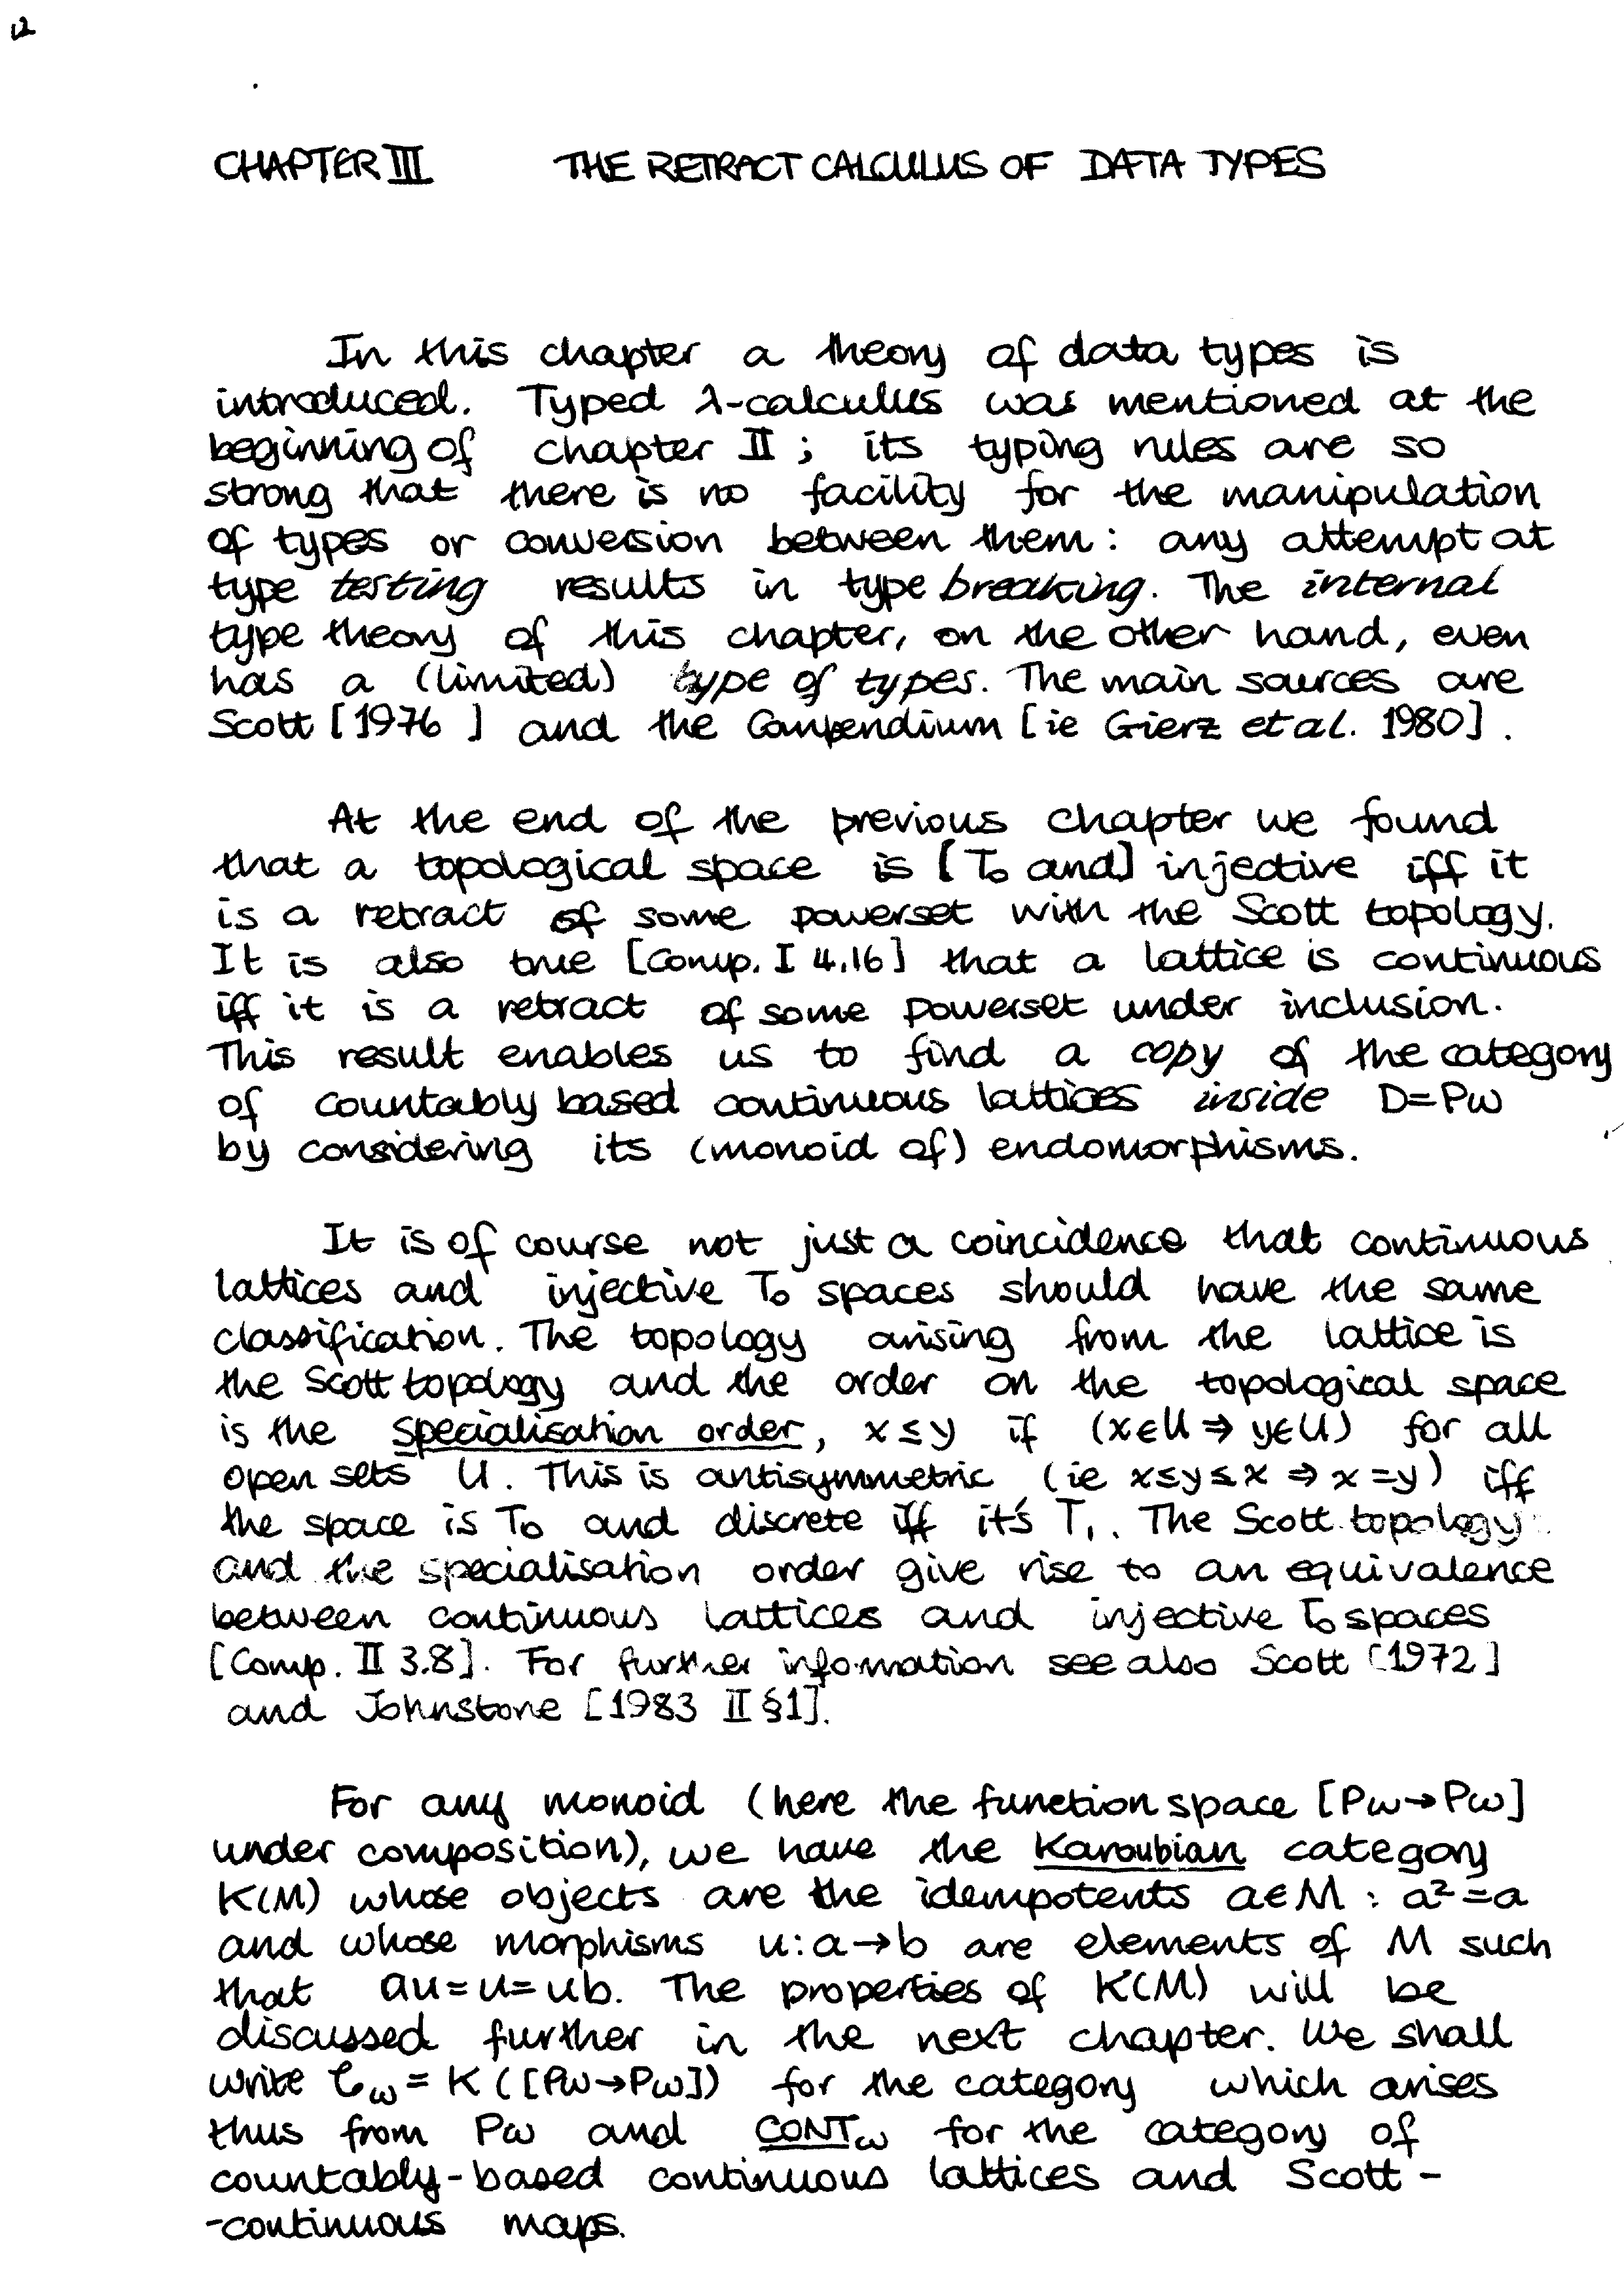 12
CHAPTER III THE RETRACT CALCULUS OF DATA TYPES
In this chapter a theory of data types is
introduced. Typed λ-calculus was mentioned at the
beginning of chapter II ; its typing rules are so
strong that there is no facility for the manipulation
of types or conversion between them: any attempt at
type testing results in type breaking. The internal
type theory of this chapter, on the other hand, even
has a (limited) type of types. The main sources are
Scott [1976 ] and the Compendium [ie Gierz et al. 1980] .
At the end of the previous chapter we found
that a topological space is [T₀ and] injective iff it
is a retract of some powerset with the Scott topology.
It is also true [Comp. I 4.16] that a lattice is continuous
iff it is a retract of some powerset under inclusion.
This result enables us to find a copy of the category
of countably based continuous lattices inside D=Pω
by considering its (monoid of) endomorphisms.
It is of course not just a coincidence that continuous
lattices and injective T₀ spaces should have the same
classification. The topology arising from the lattice is
the Scott topology and the order on the topological space
is the specialisation order, x ≤ y if (x∈U ⇒ y∈U) for all
open sets U. This is antisymmetric (ie x≤y≤x ⇒ x=y) iff
the space is T₀ and discrete iff it's T₁. The Scott topology
and the specialisation order give rise to an equivalence
between continuous lattices and injective T₀ spaces
[Comp. II 3.8]. For further information see also Scott [1972]
and Johnstone [1983 II §1].
For any monoid (here the function space [Pω→Pω]
under composition), we have the Karoubian category
K(M) whose objects are the idempotents a∈M : a²=a
and whose morphisms u:a→b are elements of M such
that au=u=ub. The properties of K(M) will be
discussed further in the next chapter. We shall
write 𝒞ω = K ([Pω→Pω]) for the category which arises
thus from Pω and CONTω for the category of
countably-based continuous lattices and Scott-
-continuous maps.